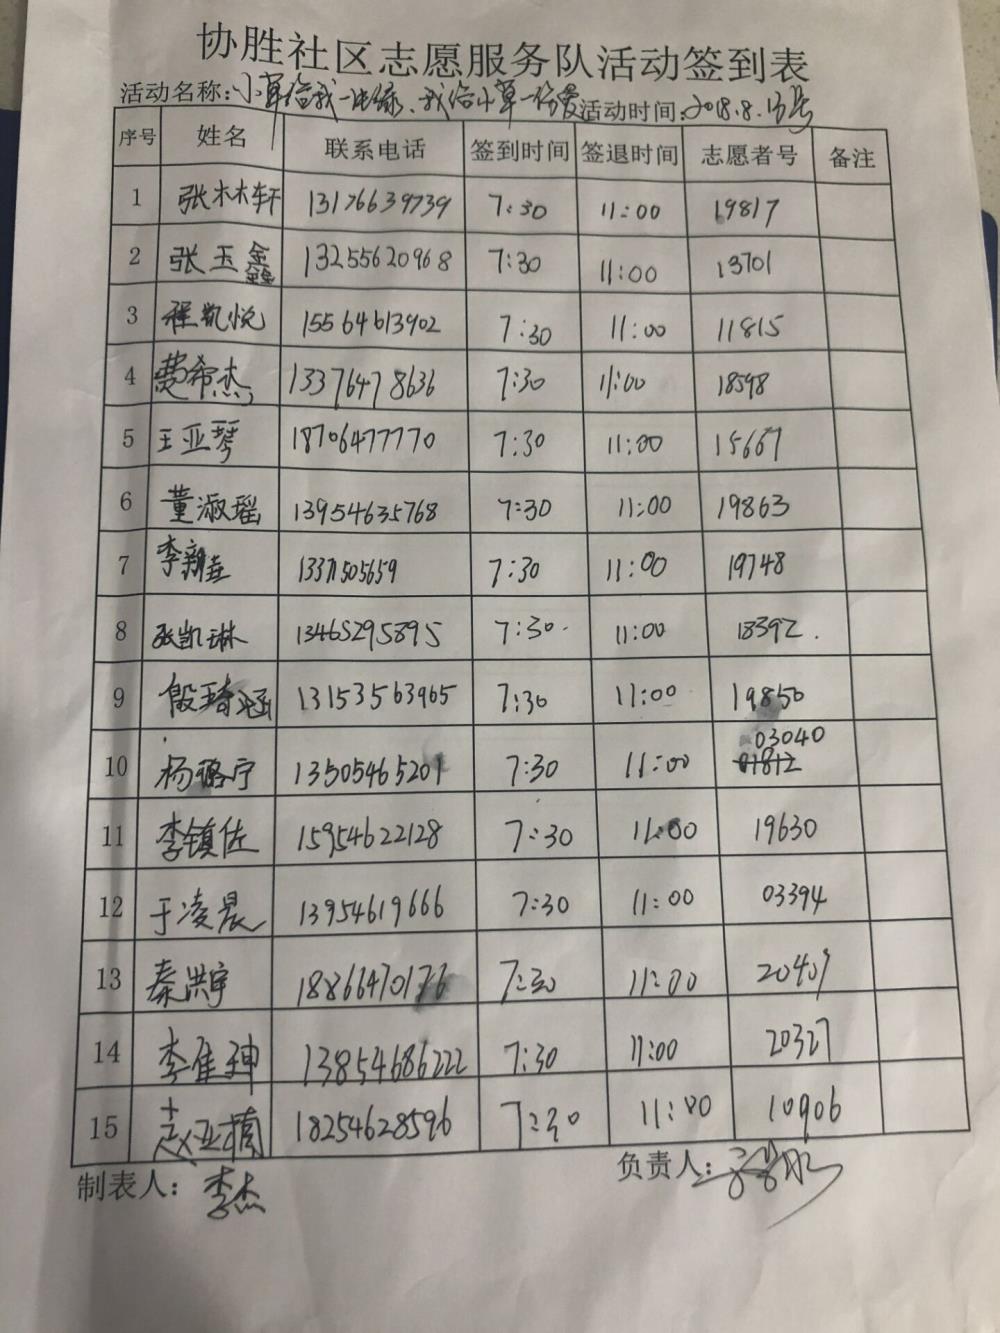 协胜社区志愿服务队活动签到表
活动名称:小草给我一片绿、我给小草一份爱 活动时间:2018.8.13号
序号 姓名 联系电话 签到时间 签退时间 志愿者号 备注
1 张林轩 13176639739 7:30 11:00 19817
2 张玉鑫 13255620968 7:30 11:00 13701
3 程凯悦 15564613902 7:30 11:00 11815
4 费希杰 13376478636 7:30 11:00 18598
5 王亚琴 18706477770 7:30 11:00 15667
6 董淑瑶 13954635768 7:30 11:00 19863
7 李新垚 13371505659 7:30 11:00 19748
8 张凯琳 13465295895 7:30 11:00 18392.
9 殷琦涵 13153563965 7:30 11:00 19850
03040
10 杨璐宁 13505465201 7:30 11:00 01812
11 李镇佐 15954622128 7:30 11:00 19630
12 于凌晨 13954619666 7:30 11:00 03394
13 秦洪宇 18866470176 7:30 11:00 20409
14 李佳珅 13854686222 7:30 11:00 20327
15 赵亚楠 18254628596 7:30 11:00 10906
制表人:李杰 负责人: